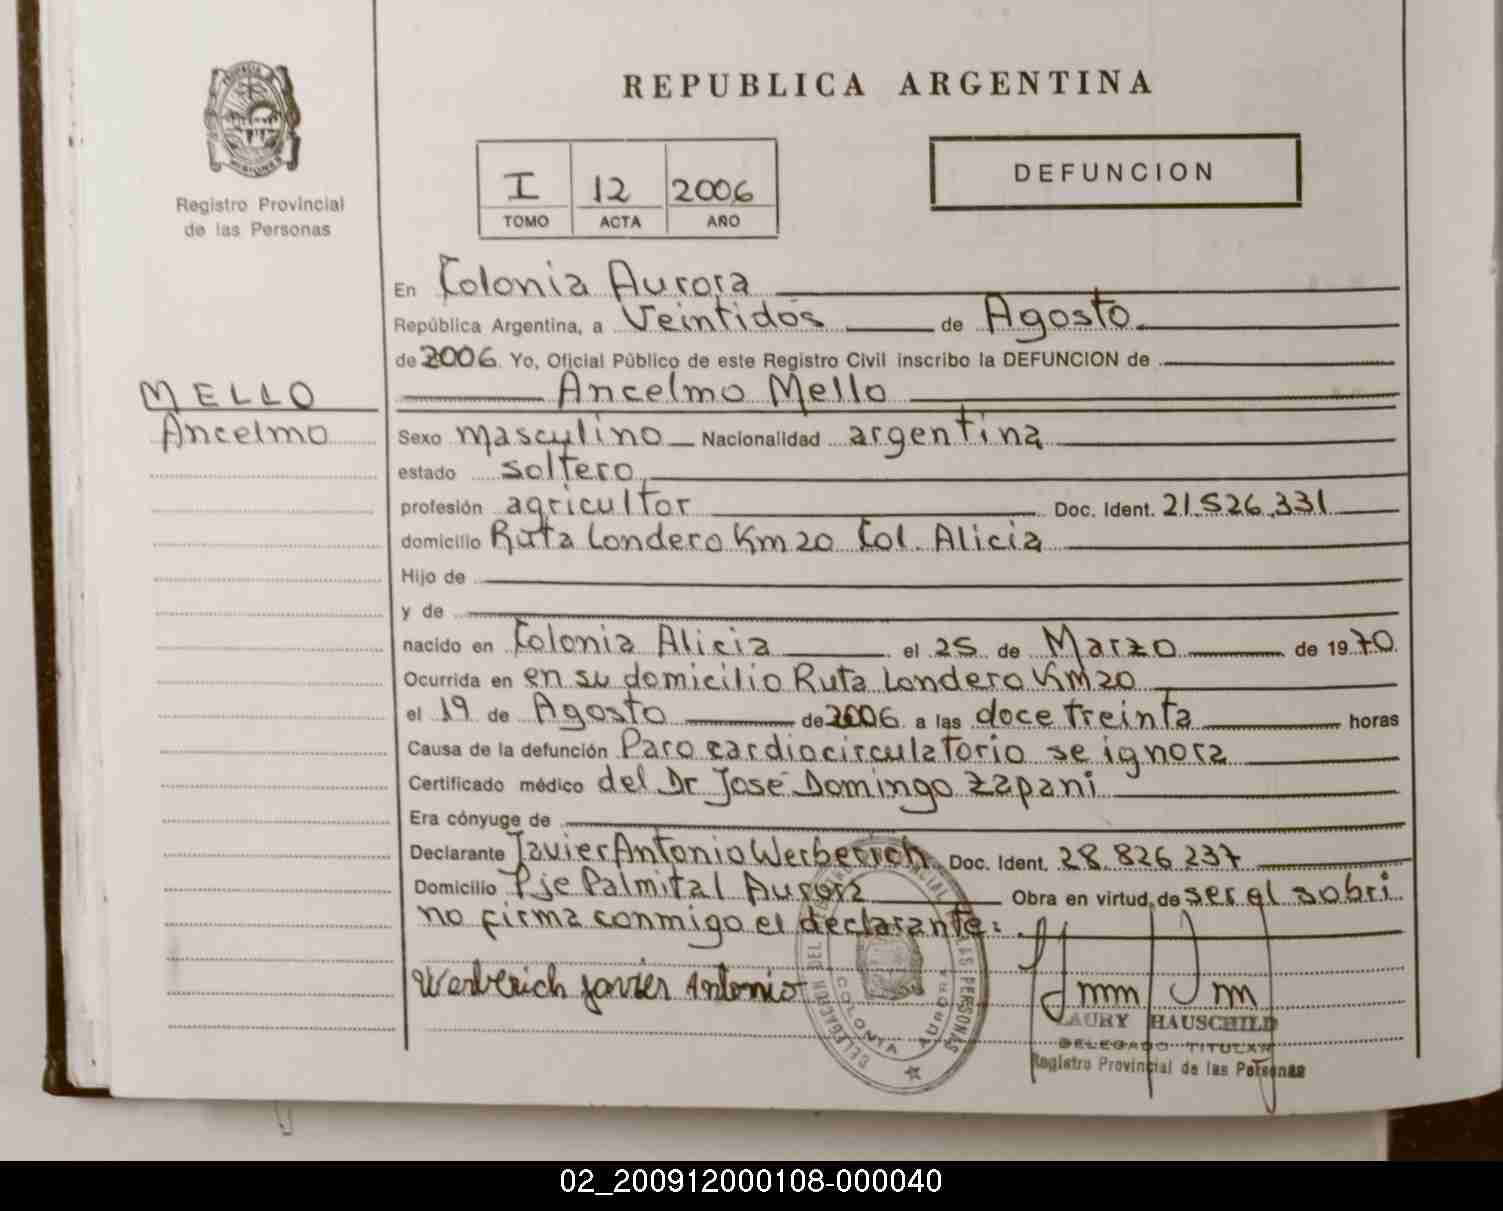 REPUBLICA ARGENTINA
PROVINCIA DE MISIONES
Registro Provincial
de las Personas
I 12 2006
TOMO ACTA AÑO
DEFUNCION
MELLO
Ancelmo
En Colonia Aurora
República Argentina, a Veintidos de Agosto
de 2006. Yo, Oficial Público de este Registro Civil inscribo la DEFUNCION de
Ancelmo Mello
Sexo masculino Nacionalidad argentina
estado soltero
profesión agricultor Doc. Ident. 21.526.331
domicilio Ruta Londero Km 20 Col. Alicia
Hijo de
y de
nacido en Colonia Alicia el 25 de Marzo de 1970
Ocurrida en en su domicilio Ruta Londero Km 20
el 19 de Agosto de 2006 a las doce treinta horas
Causa de la defunción Paro cardiocirculatorio se ignora
Certificado médico del Dr José Domingo Zapani
Era cónyuge de
Declarante Javier Antonio Werberich Doc. Ident. 28.826.237
Domicilio Pje Palmital Aurora Obra en virtud de ser el sobri
no firma conmigo el declarante:
Werberich Javier Antonio
DELEGACION DEL REGISTRO PROVINCIAL DE LAS PERSONAS
COLONIA AURORA
LAURY HAUSCHILD
DELEGADO TITULAR
Registro Provincial de las Personas
02_200912000108-000040